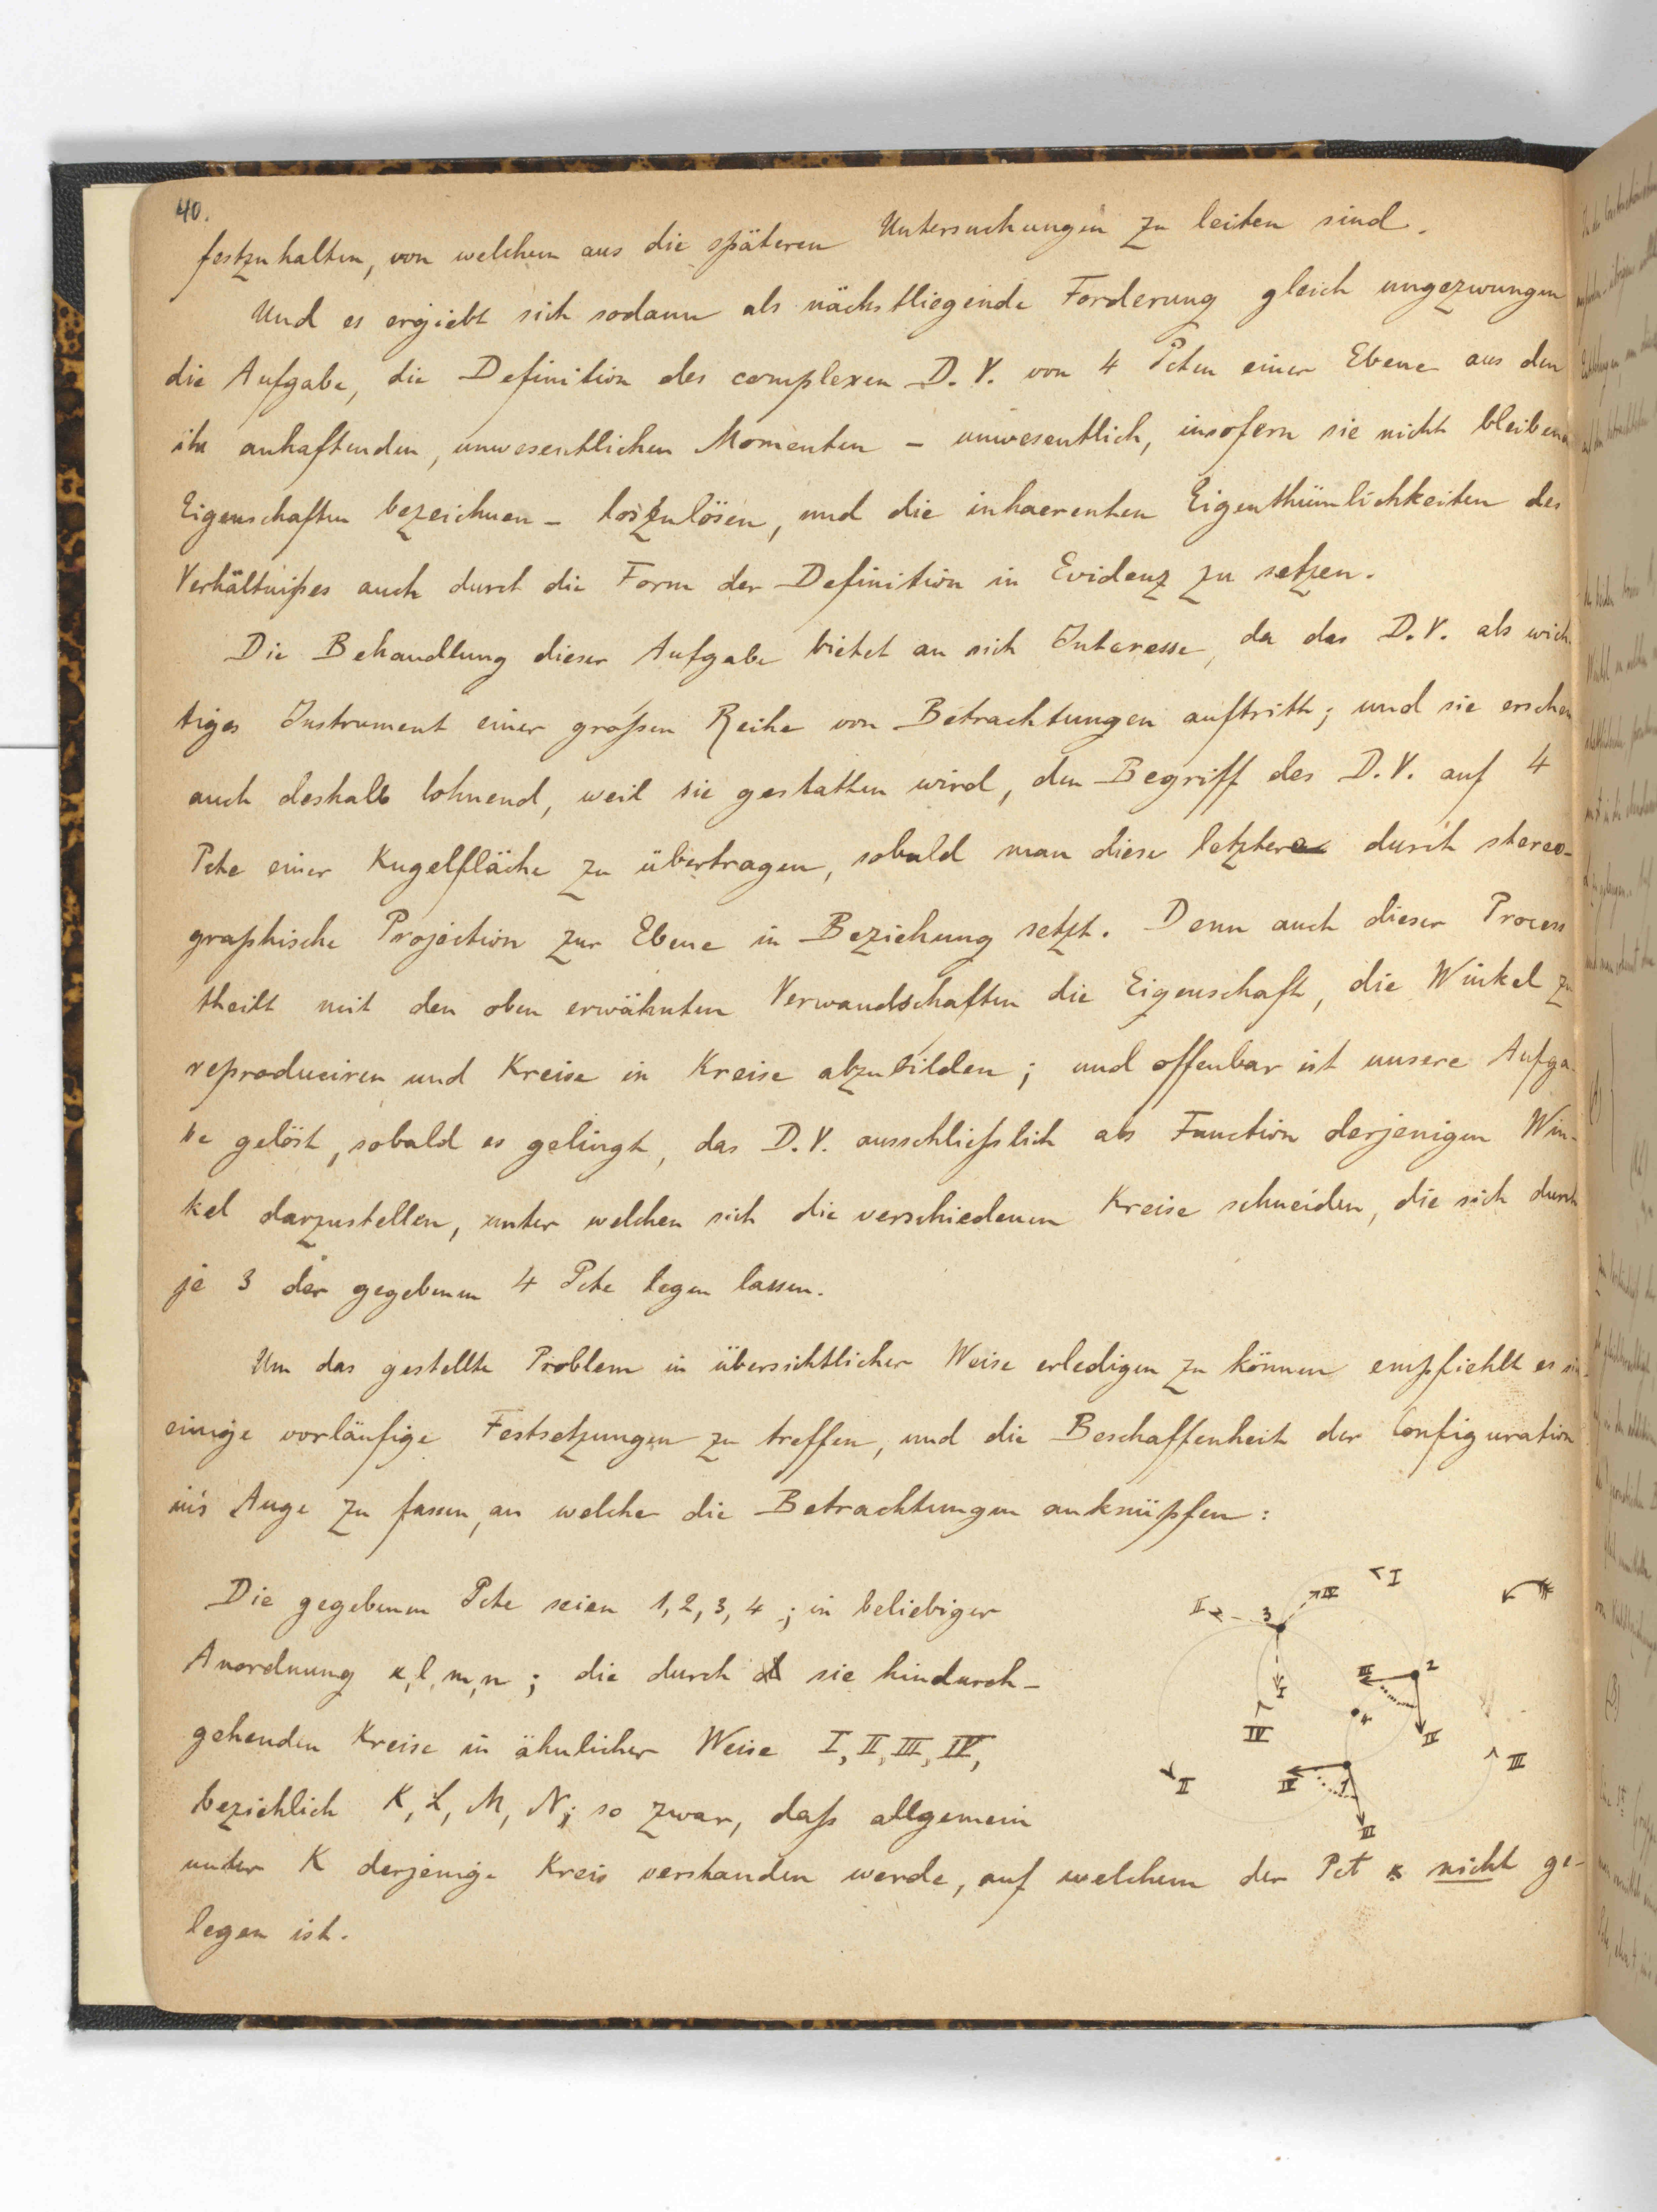 40.
festzuhalten, von welchem aus die späteren Untersuchungen zu leiten sind.
Und es ergiebt sich sodann als nächstliegende Forderung gleich ungezwungen
die Aufgabe, die Definition des complexen D.V. von 4 Pcten einer Ebene aus den
ihr anhaftenden, unwesentlichen Momenten – unwesentlich, insofern sie nicht bleibende
Eigenschaften bezeichnen – loszulösen, und die inhaerenten Eigenthümlichkeiten des
Verhältnißes auch durch die Form der Definition in Evidenz zu setzen.
Die Behandlung dieser Aufgabe bietet an sich Interesse, da das D.V. als wich-
tiges Instrument einer großen Reihe von Betrachtungen auftritt; und sie erschei
auch deshalb lohnend, weil sie gestatten wird, den Begriff des D.V. auf 4
Pcte einer Kugelfläche zu übertragen, sobald man diese letztere durch stereo-
graphische Projection zur Ebene in Beziehung setzt. Denn auch dieser Process
theilt mit den oben erwähnten Verwandschaften die Eigenschaft, die Winkel zu
reproduciren und Kreise in Kreise abzubilden; und offenbar ist unsere Aufga-
be gelöst, sobald es gelingt, das D.V. ausschließlich als Function derjenigen Win-
kel darzustellen, unter welchen sich die verschiedenen Kreise schneiden, die sich durch
je 3 der gegebenen 4 Pcte legen lassen.
Um das gestellte Problem in übersichtlicher Weise erledigen zu können empfiehlt es sich
einige vorläufige Festsetzungen zu treffen, und die Beschaffenheit der Configuration
in's Auge zu fassen, an welche die Betrachtungen anknüpfen:
Die gegebenen Pcte seien 1, 2, 3, 4; in beliebiger
Anordnung κ, l, m, n; die durch sie hindurch-
gehenden Kreise in ähnlicher Weise I, II, III, IV,
beziehlich K, L, M, N; so zwar, daß allgemein
unter K derjenige Kreis verstanden werde, auf welchem der Pct κ nicht ge-
legen ist.
I
II
3
IV
I
III
2
IV
4
IV
II
IV
1
III
III